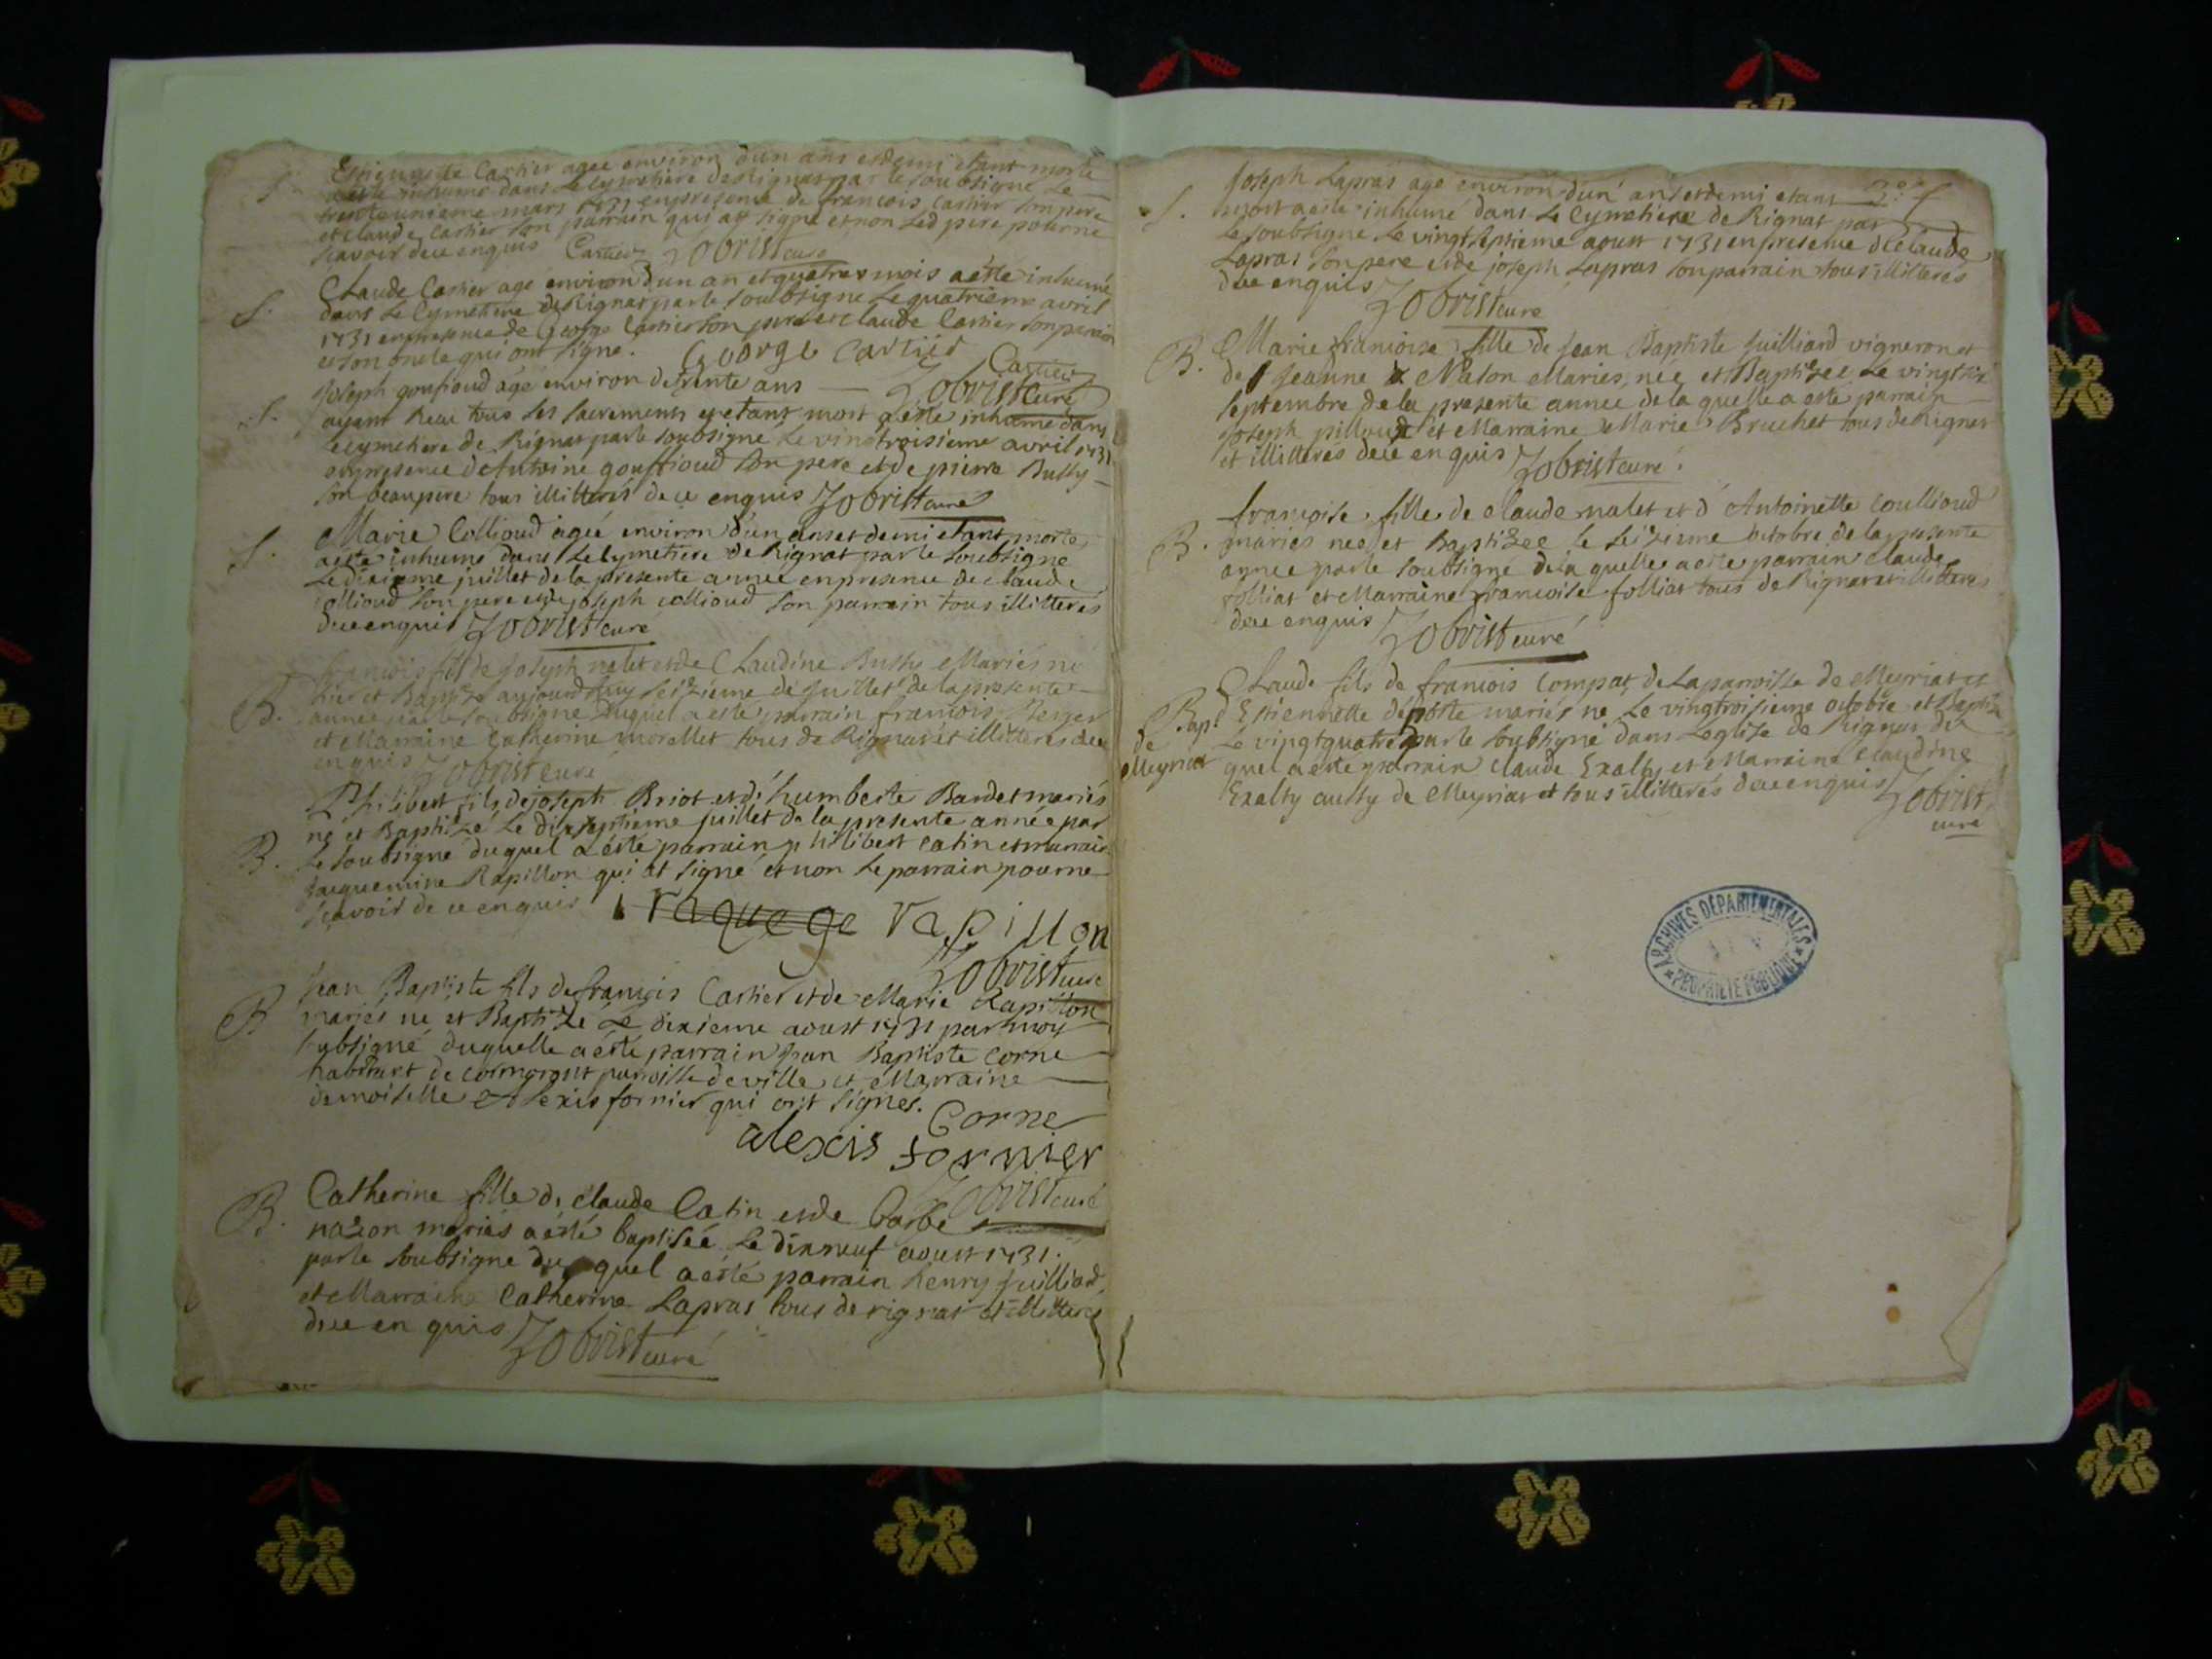 Estiennette Cartier agee environ d'un ans et demi etant morte
a esté inhumé dans le cymetiere de Rignat par le soubsigné le
trente unieme mars 1731 en presence de francois Cartier son pere
et claude Cartier son parrain qui at signé et non led pere pour ne
scavoir de ce enquis Cartier Zobrist curé
S.
Claude Cartier agé environ d'un an et quatres mois a esté inhumé
dans le Cymetiere de Rignat par le soubsigné le quatrieme avril
1731 en presence de George Cartier son pere et claude Cartier son parrain
et son oncle qui ont signé. George Cartier Cartier
S.
Joseph goufioud agé environ de trente ans — Zobrist curé
ayant receu tous les sacrements et etant mort a esté inhumé dans
le cymetiere de Rignat par le soubsigné le vingtroisieme avril 1731
en presence de Antoine gouffioud son pere et de pierre Bussy
son beaupere tous illitterés de ce enquis Zobrist curé
S.
Marie Collioud agée environ d'un ans et demi etant morte
a esté inhumé dans le cymetiere de Rignat par le soubsigné
le dixieme juillet de la presente année en presence de claude
collioud son pere et de joseph collioud son parrain tous illitterés
de ce enquis Zobrist curé
B.
francois fils de Joseph nalet et de Claudine Bussy Mariés né
hier et Baptizé aujourdhuy seizieme de Juillet de la presente
année par le soubsigné duquel a esté parrain francois Berger
et Marraine Catherine morellet tous de Rignat et illitterés de ce
enquis Zobrist curé
B.
Philibert fils de joseph Briot et d'humberte Bardet mariés
né et Baptizé le dixseptieme juillet de la presente année par
le soubsigné duquel a esté parrain philibert catin et marraine
Jacquemine Rapillon qui at signé et non le parrain pour ne
scavoir de ce enquis raquege rapillon
Zobrist curé
B
Jean Baptiste fils de francois Cartier et de Marie Rapillon
mariés né et Baptizé le dixieme aoust 1731 par moy
subsigné duquelle a esté parrain Jean Baptiste Corne
habitant de cormorant parroisse de ville et Marraine
demoiselle Alexis fornier qui ont signés. Corne
alexis fornier
Zobrist curé
B.
Catherine fille de claude Catin et de barbe
nazon mariés a esté baptisée le dixneuf aoust 1731.
par le soubsigné du quel a esté parrain henry Juilliard
et Marraine Catherine Lapras tous de rignat et illitterés
de ce en quis Zobrist curé
S.
Joseph Lapras agé environ d'un ans et demi etant
mort a esté inhumé dans le Cymetiere de Rignat par
le soubsigné le vingtseptieme aoust 1731 en presence de claude
Lapras son pere et de joseph Lapras son parrain tous illitterés
de ce enquis Zobrist curé
B.
Marie francoise fille de Jean Baptiste Juilliard vigneron et
de Jeanne Nalon Mariés, née et Baptizée le vingtsix
septembre de la presente année de la quelle a esté parrain
Joseph pilloud et Marraine Marie Bruchet tous de Rignat
et illitterés de ce enquis Zobrist curé.
B.
francoise fille de claude nalet et d'Antoinette coullioud
mariés née et Baptizée le seizieme octobre de la presente
année par le soubsigné de la quelle a esté parrain claude
folliat et Marraine francoise folliat tous de Rignat et illitterés
de ce enquis Zobrist curé
Bap.
de
Meyriat
Claude fils de francois Compat de la parroisse de Meyriat et
d'Estiennette deposte mariés né le vingtroisieme octobre et Baptizé
le vingtquatre par le soubsigné dans l'eglise de Rignat du
quel a esté parrain claude Exalty et Marraine Claudine
Exalty aussy de Meyriat et tous illitterés de ce enquis Zobrist
curé
ARCHIVES DÉPARTEMENTALES
PROPRIÉTÉ PUBLIQUE